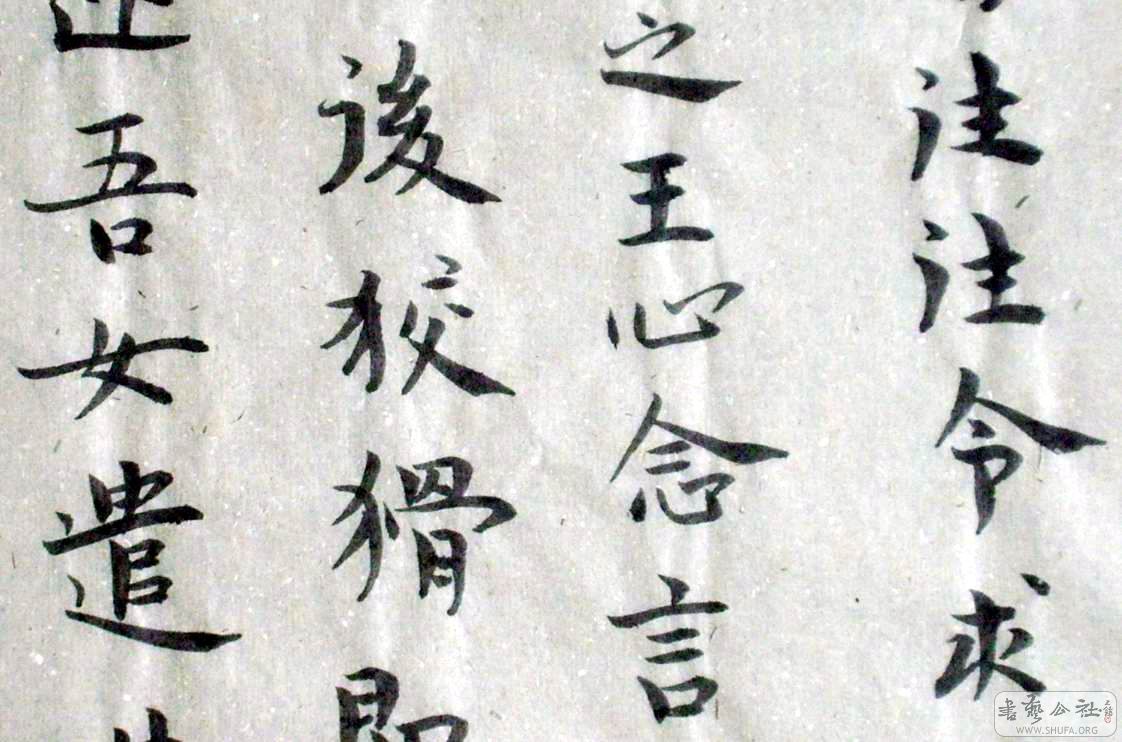 往往令求
之王心念言
後狡猾即
吾女遣
書藝公社
WWW.SHUFA.ORG